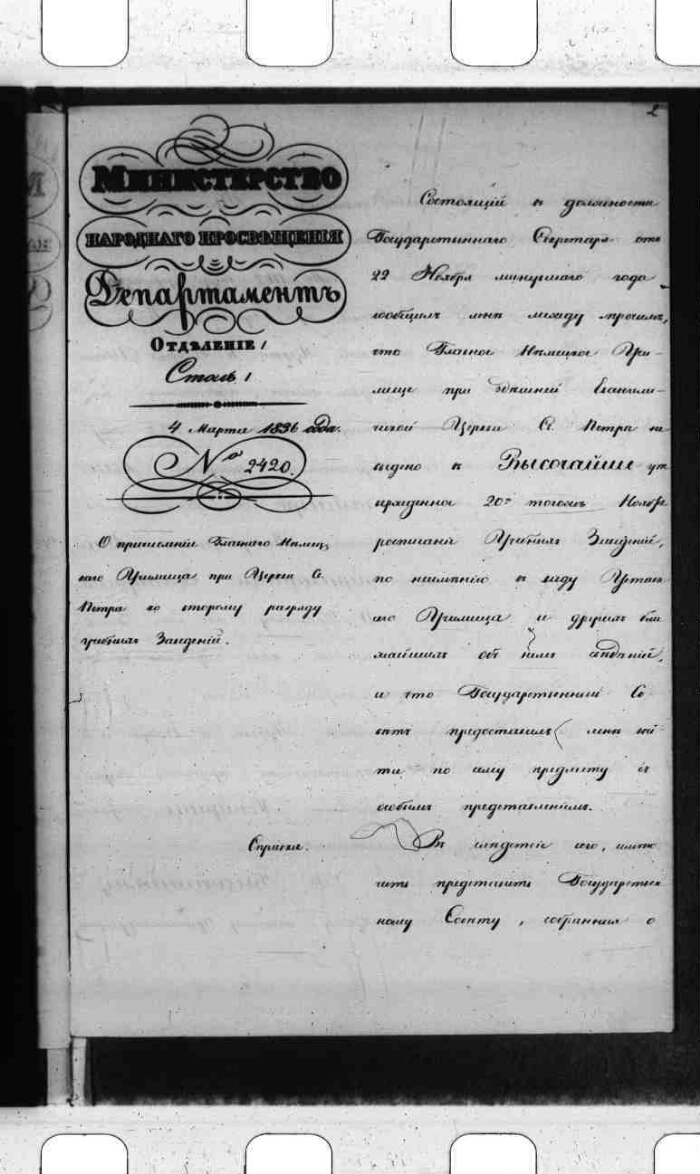 2
МИНИСТЕРСТВО
НАРОДНАГО ПРОСВѢЩЕНІЯ
Департаментъ
ОТДѢЛЕНІЕ 1
Столъ 1
4 Марта 1836 года.
№ 2420.
О причисленіи Главнаго Нѣмец-
каго Училища при Церкви Св.
Петра ко второму разряду
учебныхъ Заведеній.
Справка.
Состоящій въ должности
Государственнаго Секретаря отъ
22 Ноября минувшаго года
сообщилъ мнѣ между прочимъ,
что Главное Нѣмецкое Учи-
лище при здѣшней Евангели-
ческой Церкви Св. Петра не
введено въ ВЫСОЧАЙШЕ ут
вержденное 20го тогожъ Ноября
росписаніе Учебныхъ Заведеній,
по неимѣнію въ виду Устава
сего Училища и другихъ бли
жайшихъ объ немъ свѣдѣній,
и что Государственный Со
вѣтъ предоставилъ мнѣ вой-
ти по сему предмету съ
особымъ представленіемъ.
Въ слѣдствіе сего, имѣю
честь представить Государствен
ному Совѣту, собранныя о